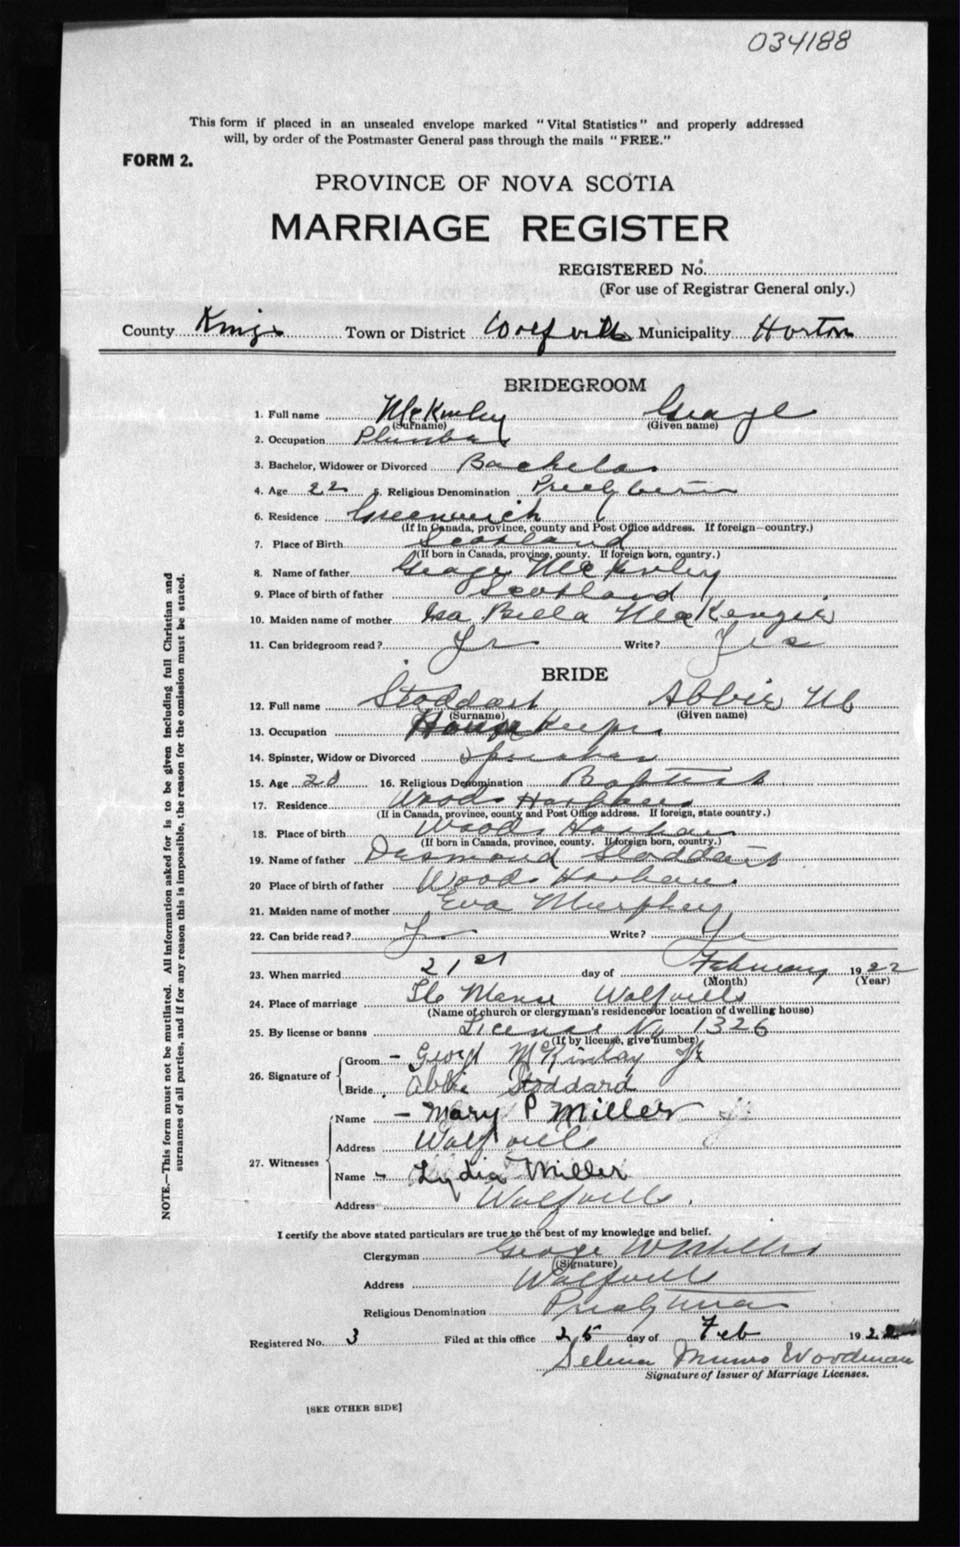 034188
This form if placed in an unsealed envelope marked "Vital Statistics" and properly addressed
will, by order of the Postmaster General pass through the mails "FREE."
FORM 2.
PROVINCE OF NOVA SCOTIA
MARRIAGE REGISTER
REGISTERED No.
(For use of Registrar General only.)
County Kings Town or District Wolfville Municipality Horton
BRIDEGROOM
1. Full name McKinley George
(Surname) (Given name)
2. Occupation Plumber
3. Bachelor, Widower or Divorced Bachelor
4. Age 22 5. Religious Denomination Presbyterian
6. Residence Greenwich
(If in Canada, province, county and Post Office address. If foreign—country.)
7. Place of Birth Scotland
(If born in Canada, province, county. If foreign born, country.)
8. Name of father George McKinley
9. Place of birth of father Scotland
10. Maiden name of mother Isa Bella MacKenzie
11. Can bridegroom read? Yes Write? Yes
BRIDE
12. Full name Stoddart Abbie M
(Surname) (Given name)
13. Occupation House Keeper
14. Spinster, Widow or Divorced Spinster
15. Age 16. Religious Denomination Baptist
17. Residence Woods Harbour
(If in Canada, province, county and Post Office address. If foreign, state country.)
18. Place of birth Woods Harbour
(If born in Canada, province, county. If foreign born, country.)
19. Name of father Desmond Stoddart
20 Place of birth of father Woods Harbour
21. Maiden name of mother Eva Murphey
22. Can bride read? Yes Write? Yes
23. When married 21st day of February 1922
(Month) (Year)
24. Place of marriage The Manse Wolfville
(Name of church or clergyman's residence or location of dwelling house)
25. By license or banns License No 1326
(If by license, give number)
26. Signature of Groom – George McKinlay Jr
Bride Abbie Stoddard
27. Witnesses Name – Mary P Miller
Address Wolfville
Name – Lydia Miller
Address Wolfville.
I certify the above stated particulars are true to the best of my knowledge and belief.
Clergyman George W Miller
(Signature)
Address Wolfville
Religious Denomination Presbyterian
Registered No. 3 Filed at this office 25 day of Feb 1922
Selina Munro Woodman
Signature of Issuer of Marriage Licenses.
[SEE OTHER SIDE]
NOTE.—This form must not be mutilated. All information asked for is to be given including full Christian and
surnames of all parties, and if for any reason this is impossible, the reason for the omission must be stated.